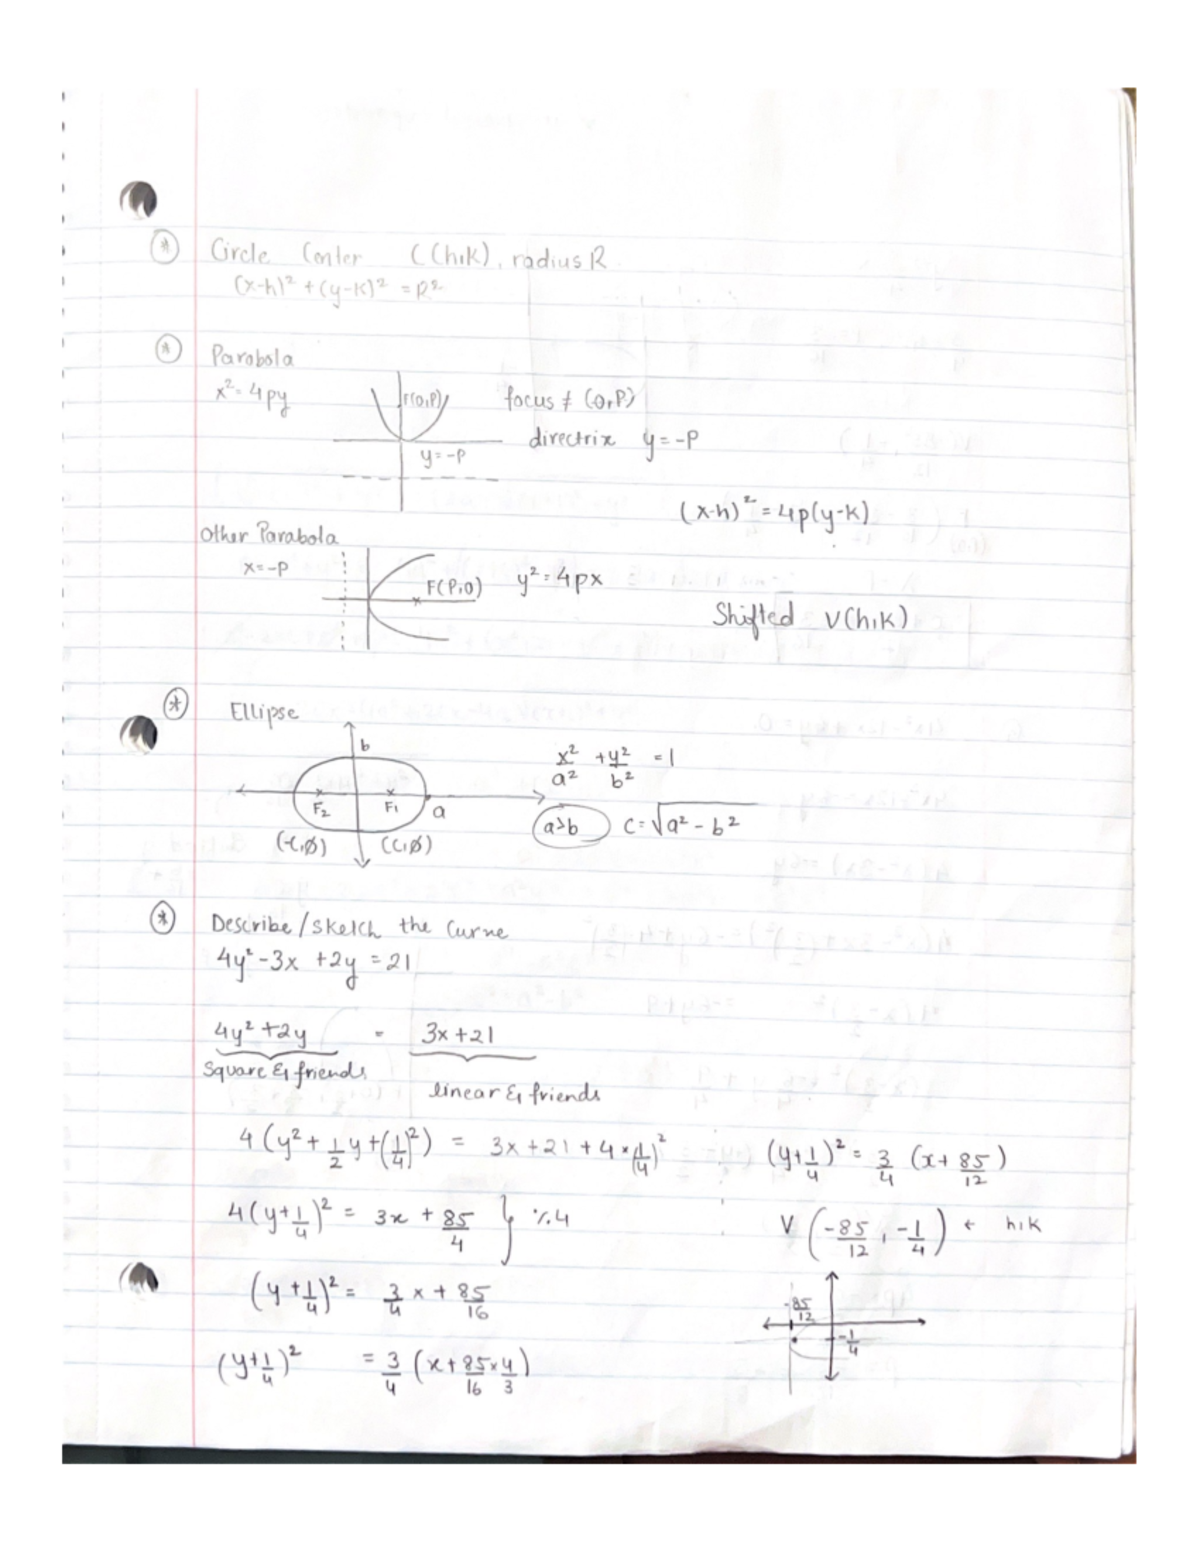 * Circle Center C(h,k), radius R
(x-h)² + (y-k)² = R²
* Parabola
x² = 4py
F(0,P)
focus ≠ (0,P)
directrix y = -P
y = -P
(x-h)² = 4p(y-k)
Other Parabola
x = -P
F(P,0)
y² = 4px
Shifted V(h,k)
* Ellipse
b
x²/a² + y²/b² = 1
F₂ F₁ a
a>b c = √a² - b²
(-c,∅) (c,∅)
* Describe / sketch the curve
4y² - 3x + 2y = 21
4y² + 2y = 3x + 21
Square & friends
linear & friends
4(y² + 1/2 y + (1/4)²) = 3x + 21 + 4 × (1/4)²
(y + 1/4)² = 3/4 (x + 85/12)
4(y + 1/4)² = 3x + 85/4 } ÷4
V (-85/12, -1/4) ← h,k
(y + 1/4)² = 3/4 x + 85/16
-85/12
-1/4
(y + 1/4)² = 3/4 (x + 85/16 × 4/3)